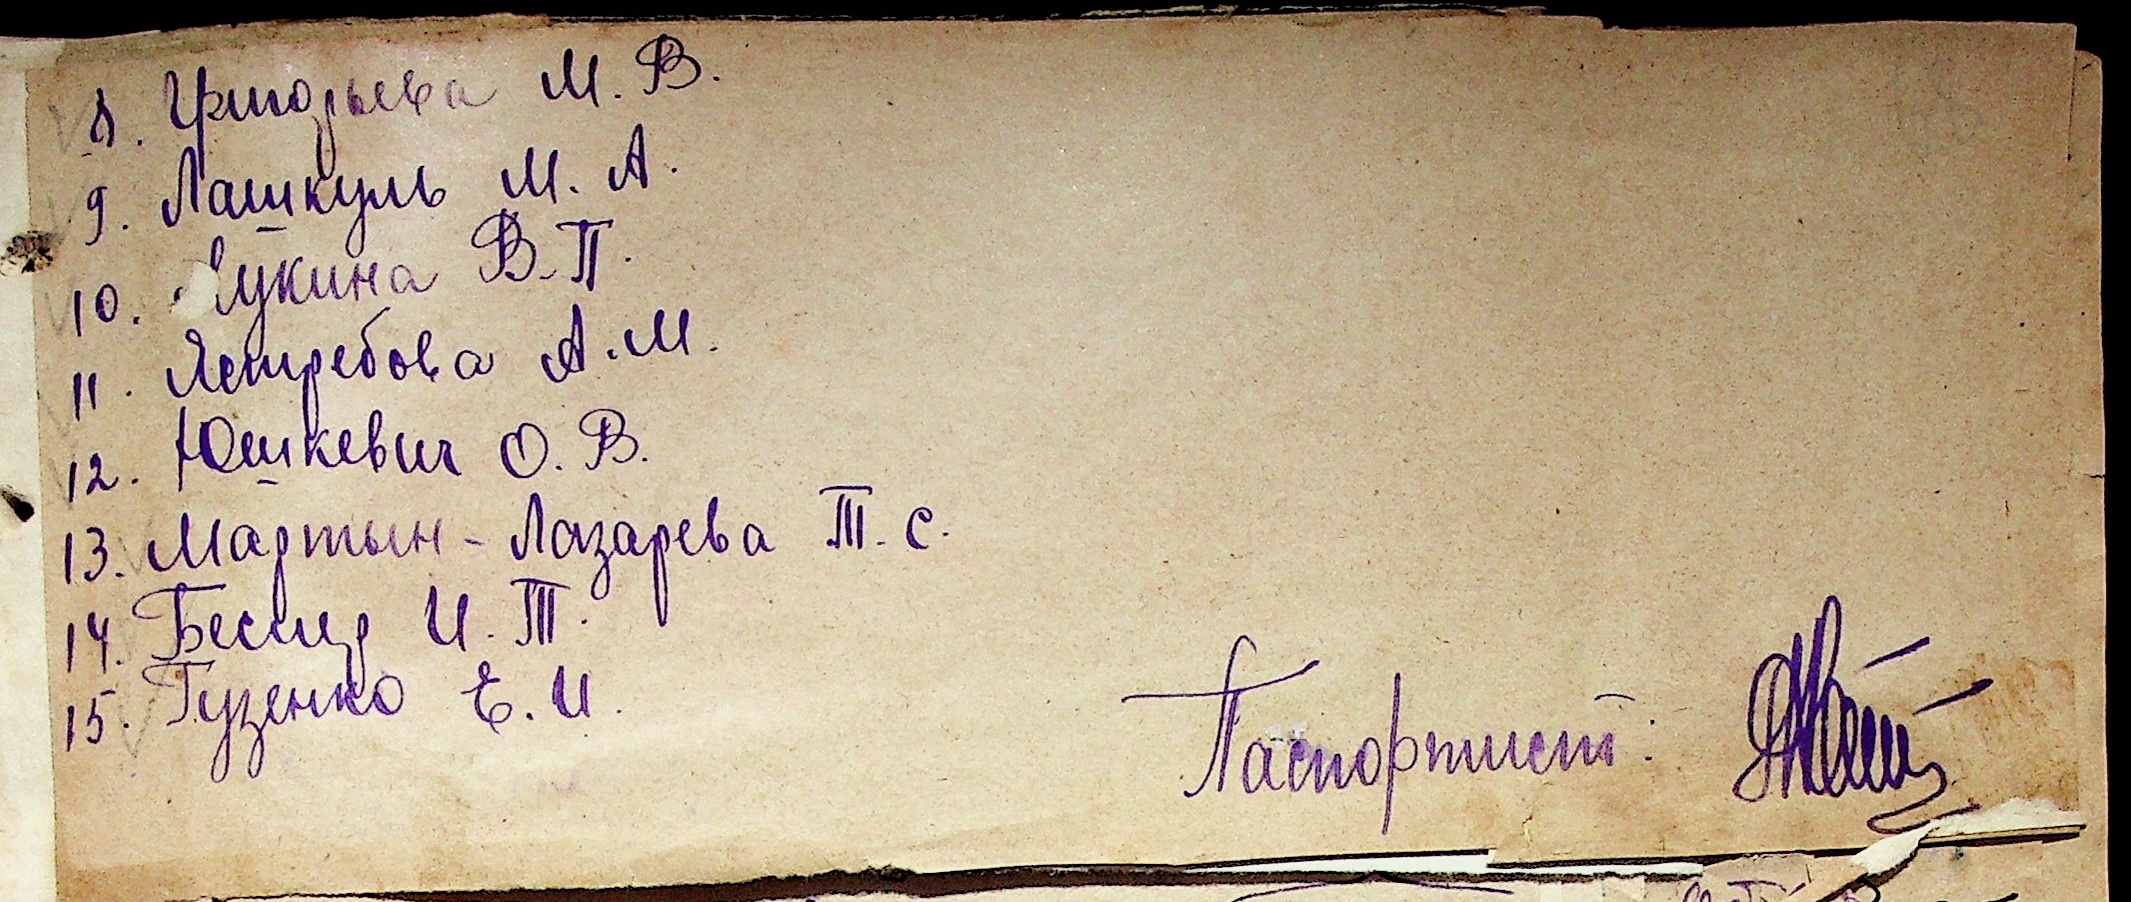 8. Григорьева М. В.
9. Лашкуль М. А.
10. Лукина В. П.
11. Ястребова А. М.
12. Юшкевич О. В.
13. Мартын - Лазарева Т. С.
14. И. Т.
15. Гузенко Е. И.
Паспортист: